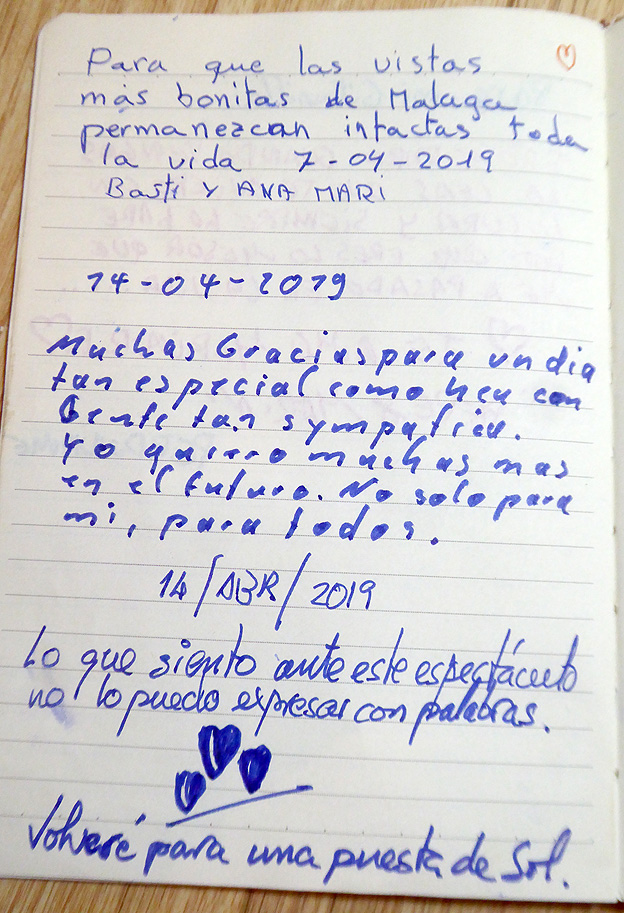 Para que las vistas
más bonitas de Malaga
permanezcan intactas toda
la vida 7-04-2019
Basti Y ANA MARI
14-04-2019
Muchas Gracias para un dia
tan especial como heu con
Gente tan sympatica.
Yo quiero muchas mas
en el futuro. No solo para
mi, para todos.
14/ABR/2019
Lo que siento ante este espectáculo
no lo puedo expresar con palabras.
Volveré para una puesta de Sol.